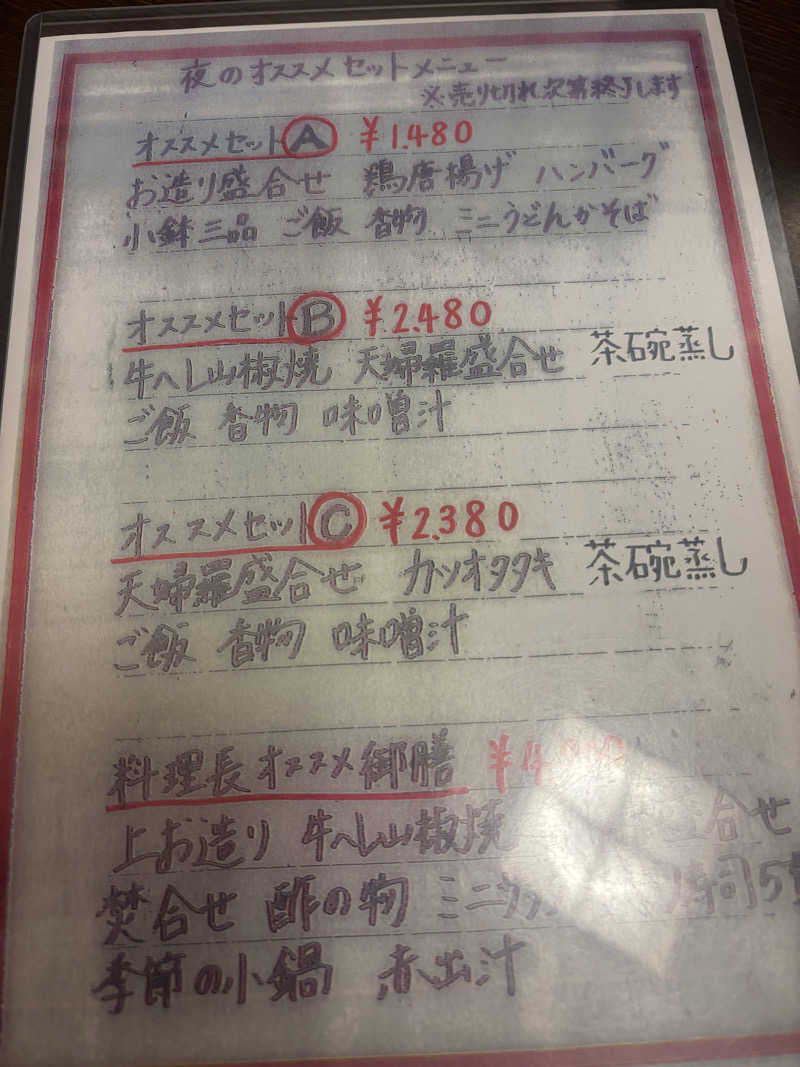 夜のオススメセットメニュー
※売り切れ次第終了します
オススメセットA ¥1.480
お造り盛合せ 鶏唐揚げ ハンバーグ
小鉢三品 ご飯 香物 ミニうどんかそば
オススメセットB ¥2.480
牛へレ山椒焼 天婦羅盛合せ 茶碗蒸し
ご飯 香物 味噌汁
オススメセットC ¥2.380
天婦羅盛合せ カツオタタキ 茶碗蒸し
ご飯 香物 味噌汁
料理長オススメ御膳
上お造り 牛へレ山椒焼 盛合せ
焚合せ 酢の物 ミニ 寿司5貫
季節の小鍋 赤出汁